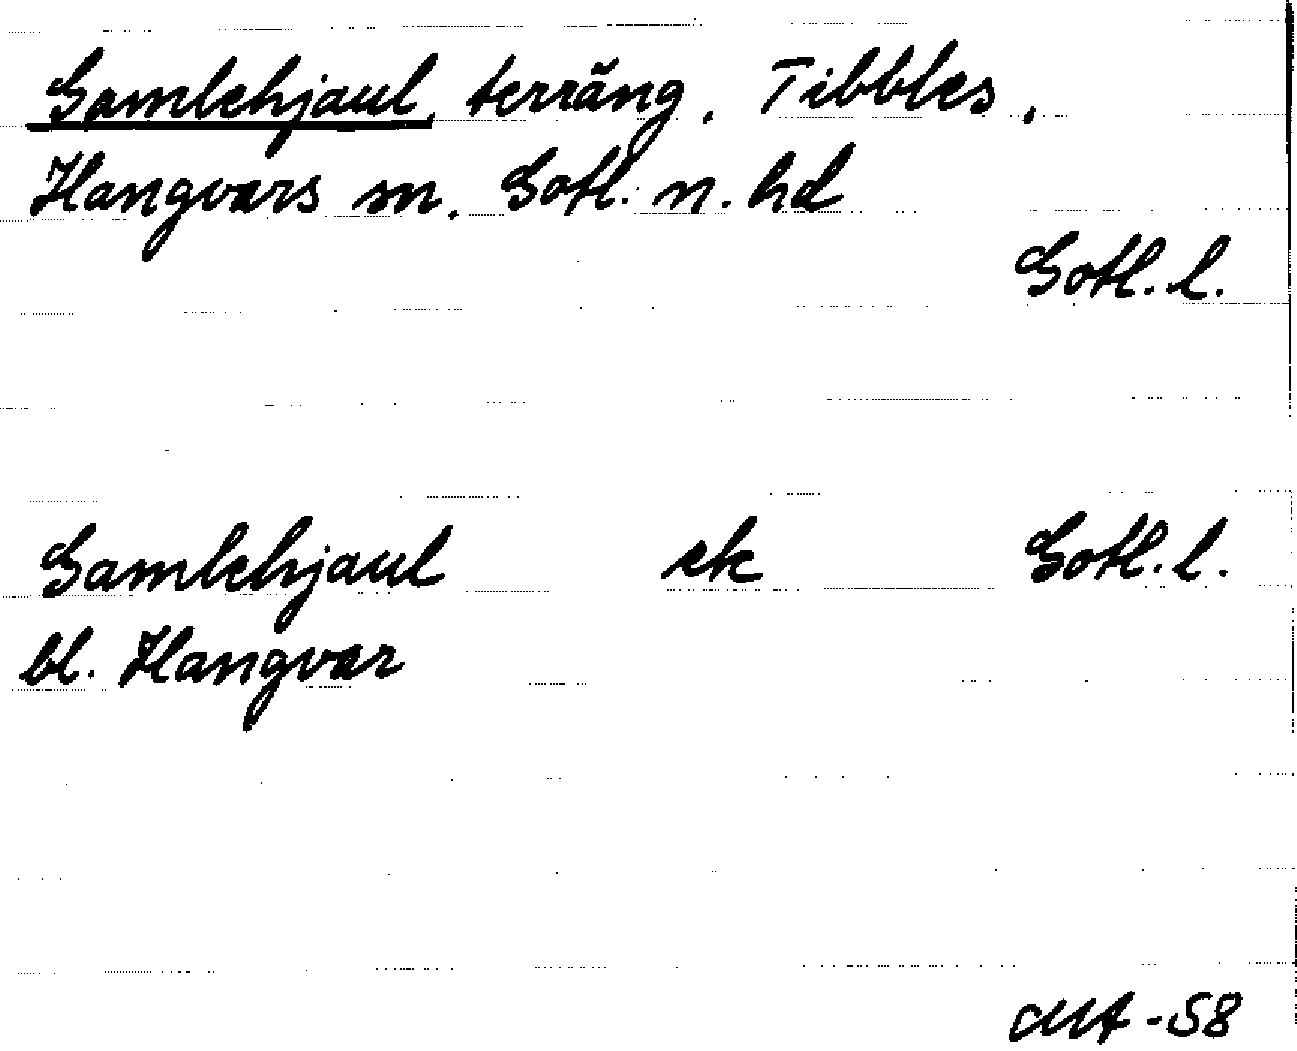 Gamlehjaul, terräng. Tibbles,
Hangvars sn. Gotl. n. hd
Gotl. l.
Gamlehjaul ek Gotl. l.
bl. Hangvar
-58